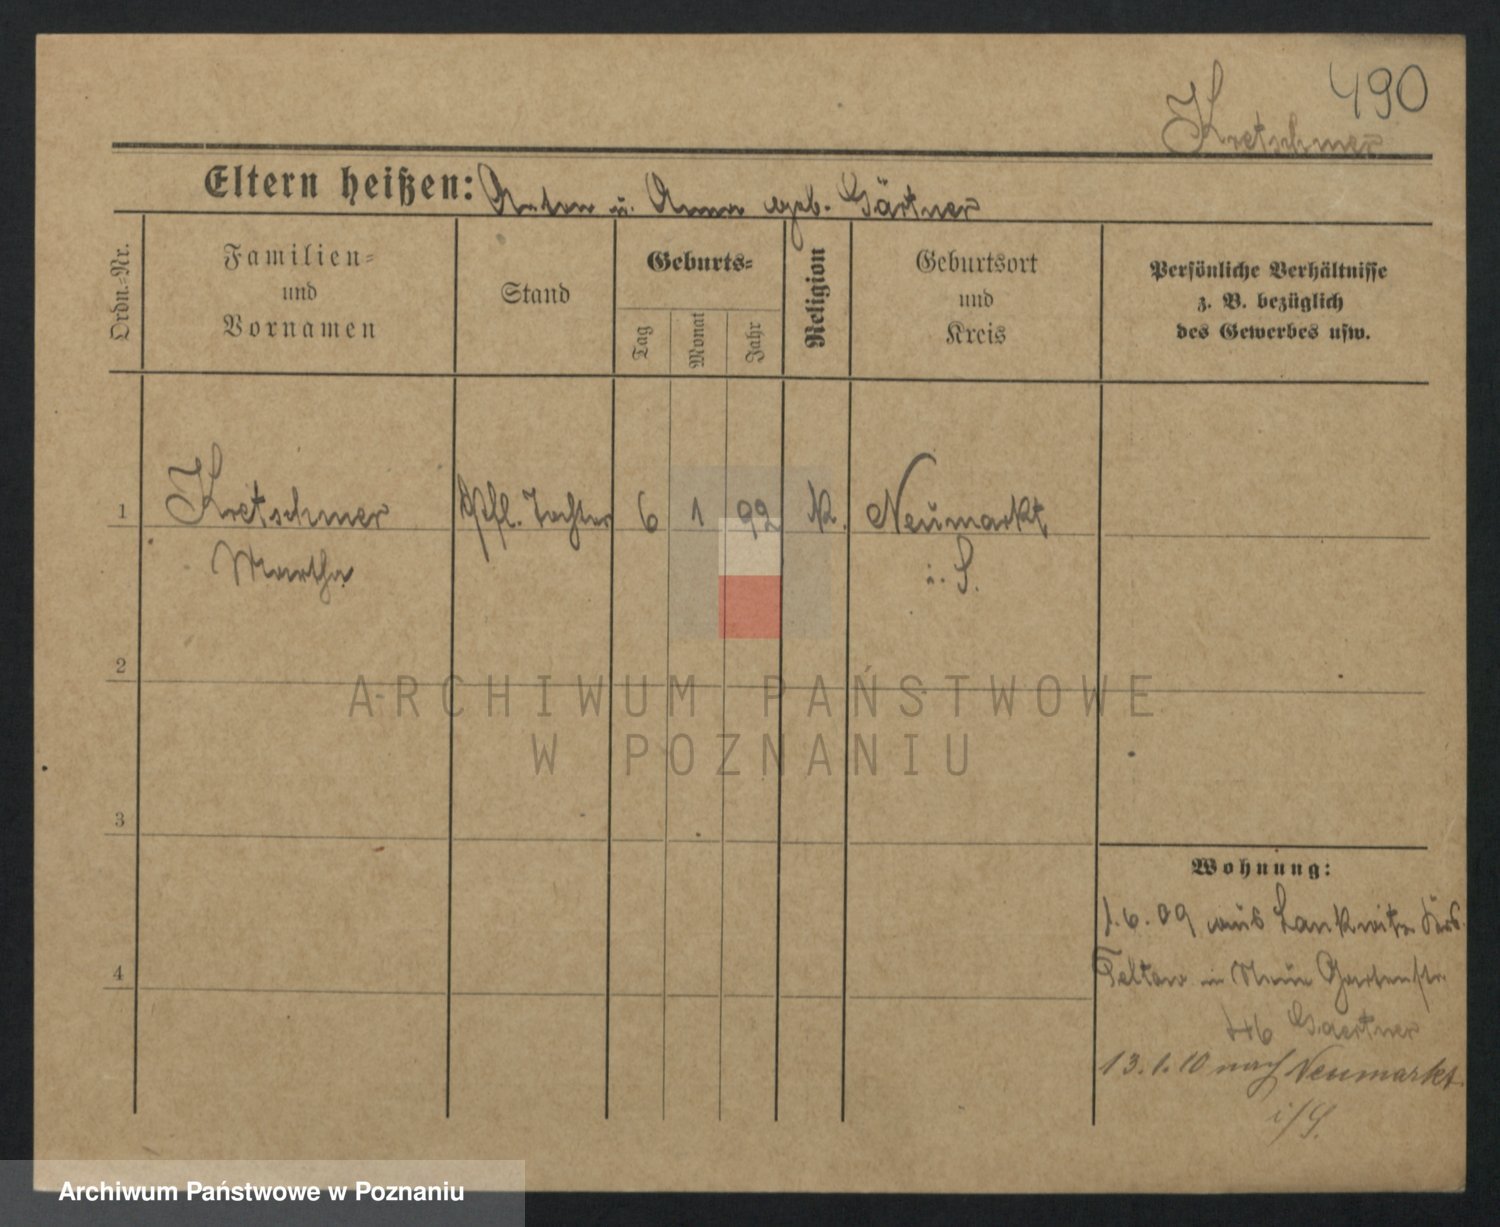 490
Kretschmer
Eltern heißen: Anton u. Anna geb. Gärtner
Ordn.-Nr.
Familien-
und
Vornamen
Stand
Geburts-
Tag
Monat
Jahr
Religion
Geburtsort
und
Kreis
Persönliche Verhältnisse
z. B. bezüglich
des Gewerbes usw.
1 Kretschmer Tochter 6 1 92 K. Neumarkt
Martha i. S.
2
ARCHIWUM PAŃSTWOWE
W POZNANIU
3
Wohnung:
1.6.09 aus Lankwitz
4
Teltow in Neue Gartenstr.
Gaertner
13.1.10 nach Neumarkt
i/S.
Archiwum Państwowe w Poznaniu